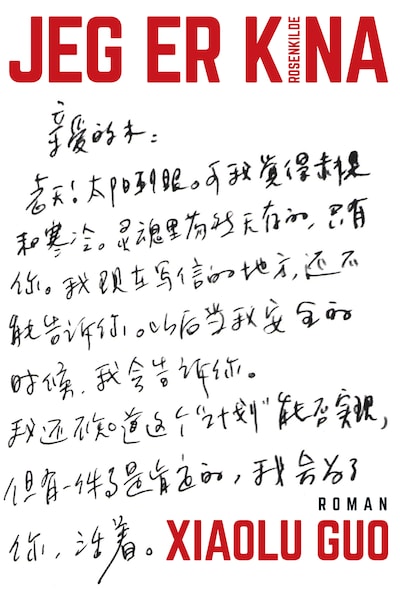 JEG ER KINA
ROSENKILDE
亲爱的木:
老天!太阳刺眼。可我覺得赤裸
和寒冷。灵魂里荡然无存的,只有
你。我现在写信的地方,还不
能告诉你。以后当我安全的
时候,我会告诉你。
我还不知道这个"计划"能否实現,
但有一件事是肯定的,我会为了
你,活着。
ROMAN
XIAOLU GUO